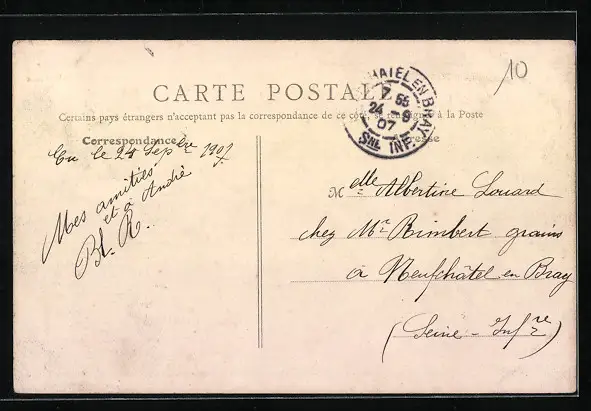 10
CARTE POSTALE
Certains pays étrangers n'acceptant pas la correspondance de ce côté, se renseigner à la Poste
Correspondance
Adresse
CHATEL EN BRAY
7 55
24 - 9
07
SNE INF.
Eu le 24 Sepbre 1907
Mes amitiés
et à André
Bl. R.
Melle Albertine Louard
chez Mr Rimbert grains
à Neufchâtel en Bray
(Seine-Infre)